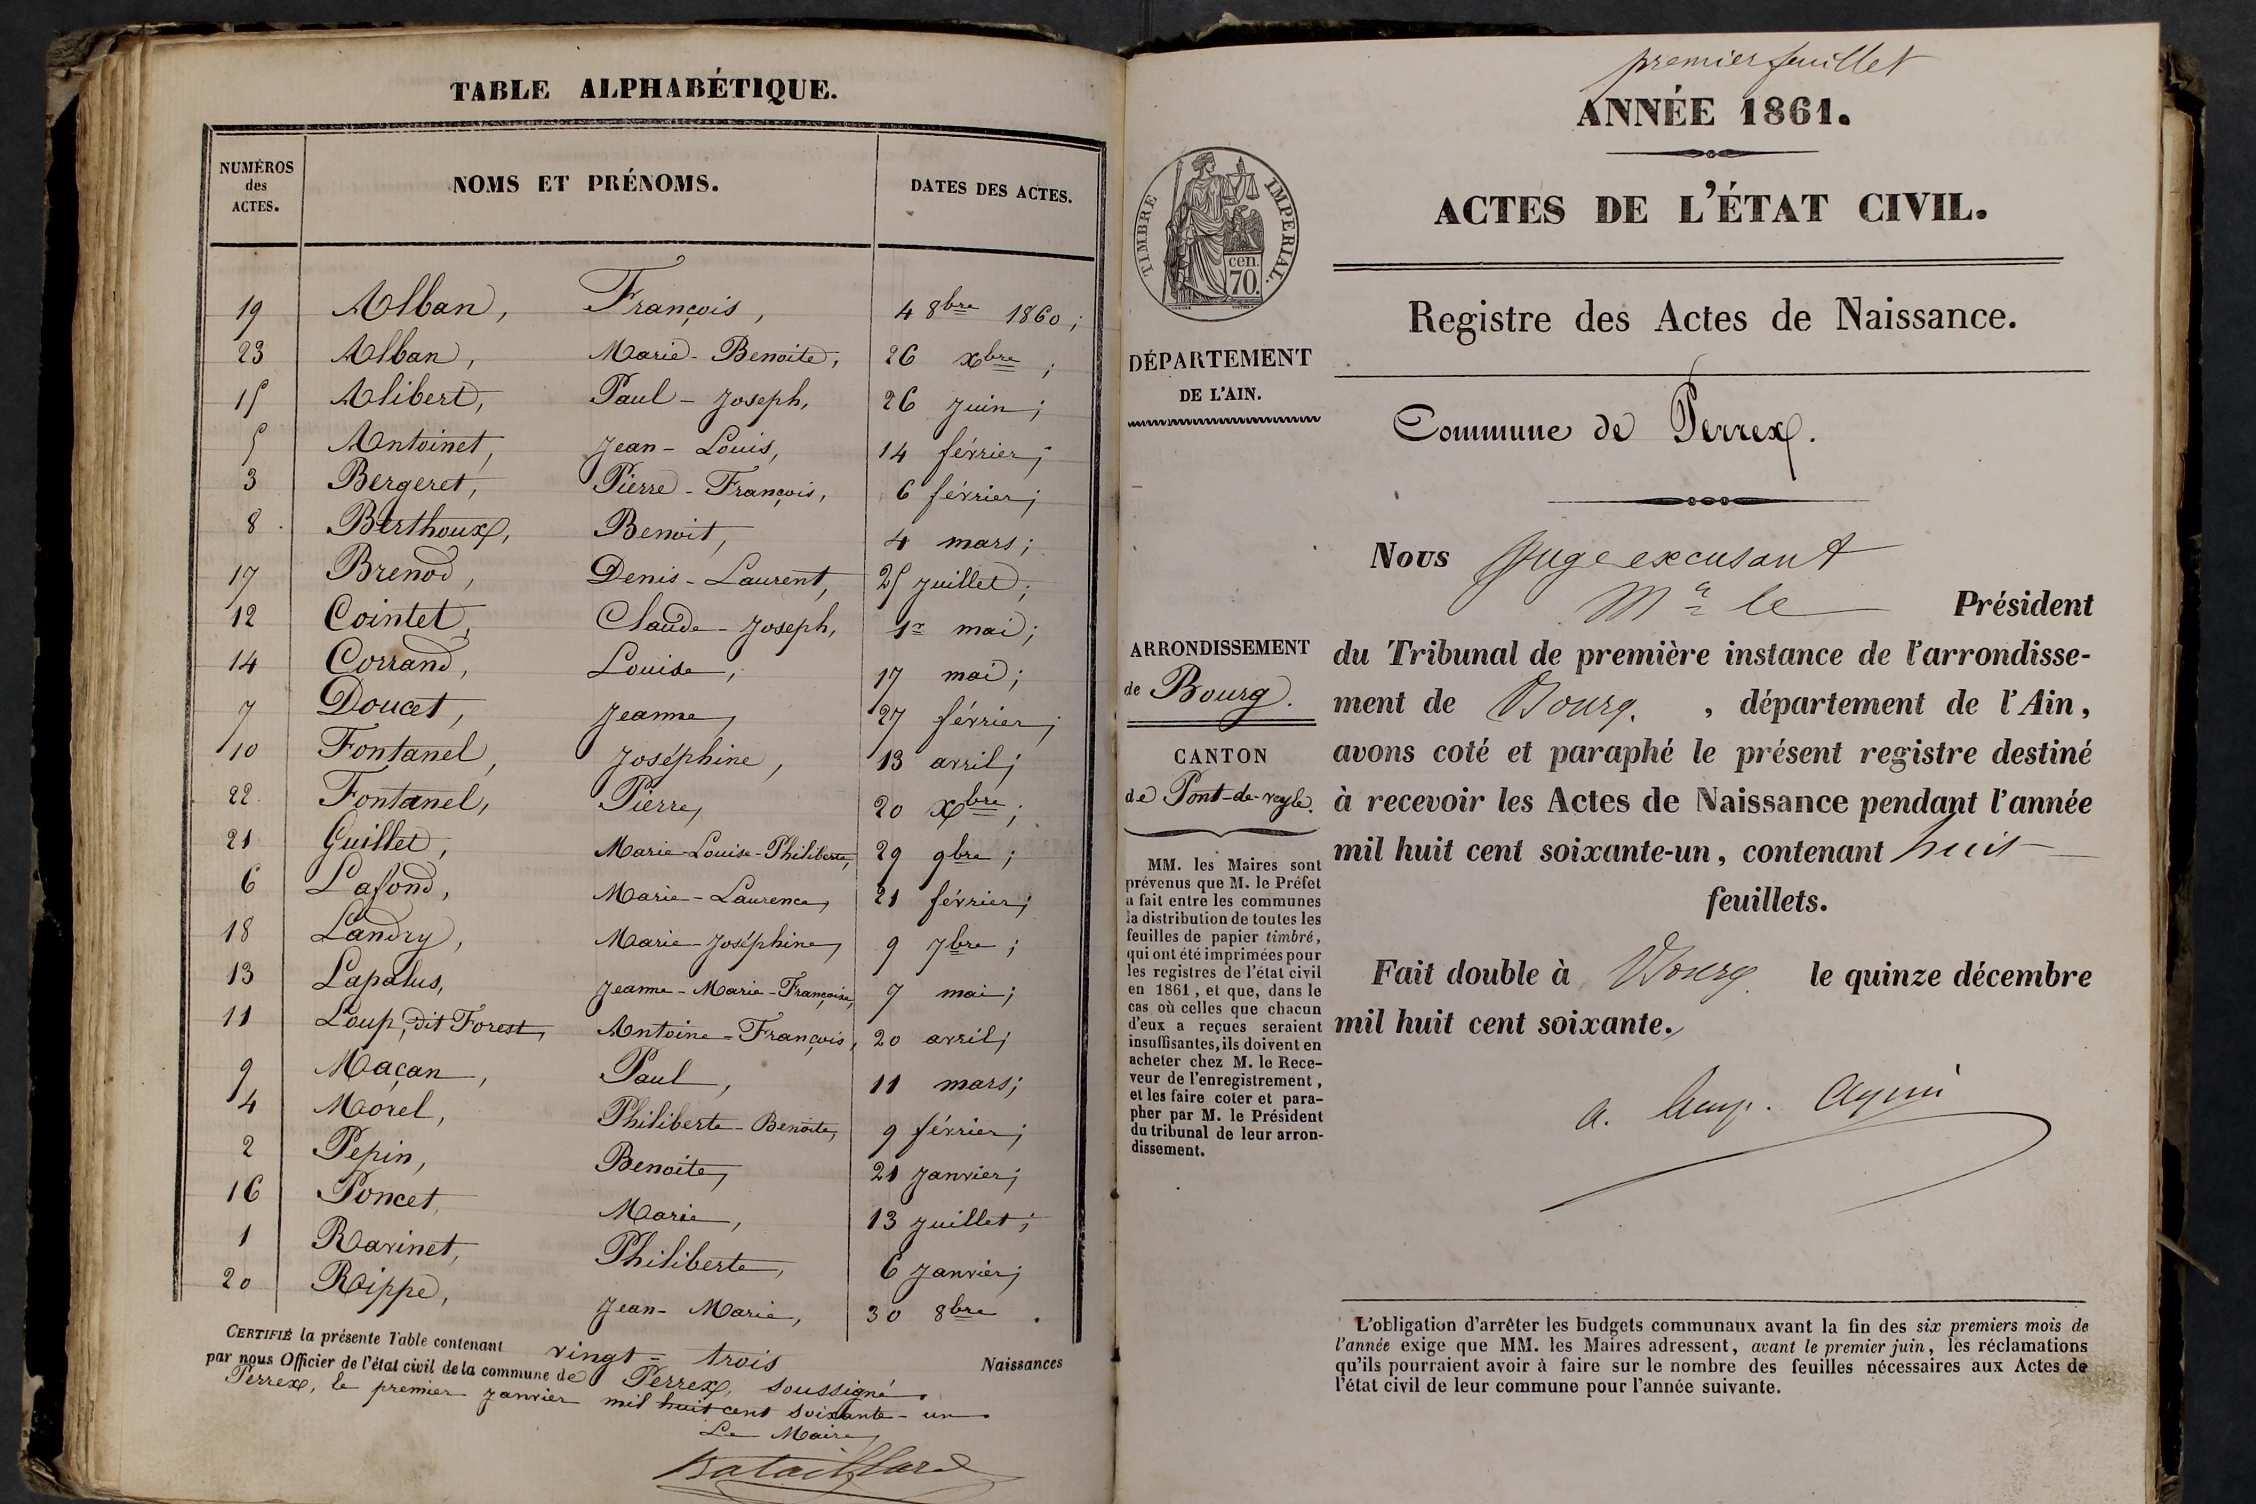 TABLE ALPHABÉTIQUE.
NUMÉROS des ACTES. NOMS ET PRÉNOMS. DATES DES ACTES.
19 Alban, François, 4 8bre 1860;
23 Alban, Marie-Benoite, 26 xbre;
15 Alibert, Paul-Joseph, 26 juin;
5 Antoinet, Jean-Louis, 14 février;
3 Bergeret, Pierre-François, 6 février;
8 Berthoux, Benoit, 4 mars;
17 Brenod, Denis-Laurent, 25 juillet;
12 Cointet, Claude-Joseph, 1er mai;
14 Corrand, Louise, 17 mai;
7 Doucet, Jeanne, 27 février;
10 Fontanel, Joséphine, 13 avril;
22 Fontanel, Pierre, 20 xbre;
21 Guillet, Marie-Louise-Philiberte, 29 9bre;
6 Lafond, Marie-Laurence, 21 février;
18 Landry, Marie-Joséphine, 9 7bre;
13 Lapalus, Jeanne-Marie-Françoise, 7 mai;
11 Loup, dit Forest, Antoine-François, 20 avril;
9 Maçan, Paul, 11 mars;
4 Morel, Philiberte-Benoite, 9 février;
2 Pepin, Benoite, 21 janvier;
16 Poncet, Marie, 13 juillet;
1 Ravinet, Philiberte, 6 janvier;
20 Rippe, Jean-Marie, 30 8bre.
CERTIFIÉ la présente Table contenant vingt-trois Naissances
par nous Officier de l'état civil de la commune de Perrex, soussigné.
Perrex, le premier janvier mil huit cent soixante-un.
Le Maire,
Bataillard
premier feuillet
ANNÉE 1861.
ACTES DE L'ÉTAT CIVIL.
TIMBRE IMPERIAL.
cen.
70.
Registre des Actes de Naissance.
DÉPARTEMENT
DE L'AIN.
Commune de Perrex.
ARRONDISSEMENT
de Bourg.
CANTON
de Pont-de-veyle.
MM. les Maires sont
prévenus que M. le Préfet
a fait entre les communes
la distribution de toutes les
feuilles de papier timbré,
qui ont été imprimées pour
les registres de l'état civil
en 1861, et que, dans le
cas où celles que chacun
d'eux a reçues seraient
insuffisantes, ils doivent en
acheter chez M. le Rece-
veur de l'enregistrement,
et les faire coter et para-
pher par M. le Président
du tribunal de leur arron-
dissement.
Nous Juge excusant
Mr le Président
du Tribunal de première instance de l'arrondisse-
ment de Bourg. , département de l'Ain,
avons coté et paraphé le présent registre destiné
à recevoir les Actes de Naissance pendant l'année
mil huit cent soixante-un, contenant huit
feuillets.
Fait double à Bourg le quinze décembre
mil huit cent soixante.
L'obligation d'arrêter les budgets communaux avant la fin des six premiers mois de
l'année exige que MM. les Maires adressent, avant le premier juin, les réclamations
qu'ils pourraient avoir à faire sur le nombre des feuilles nécessaires aux Actes de
l'état civil de leur commune pour l'année suivante.